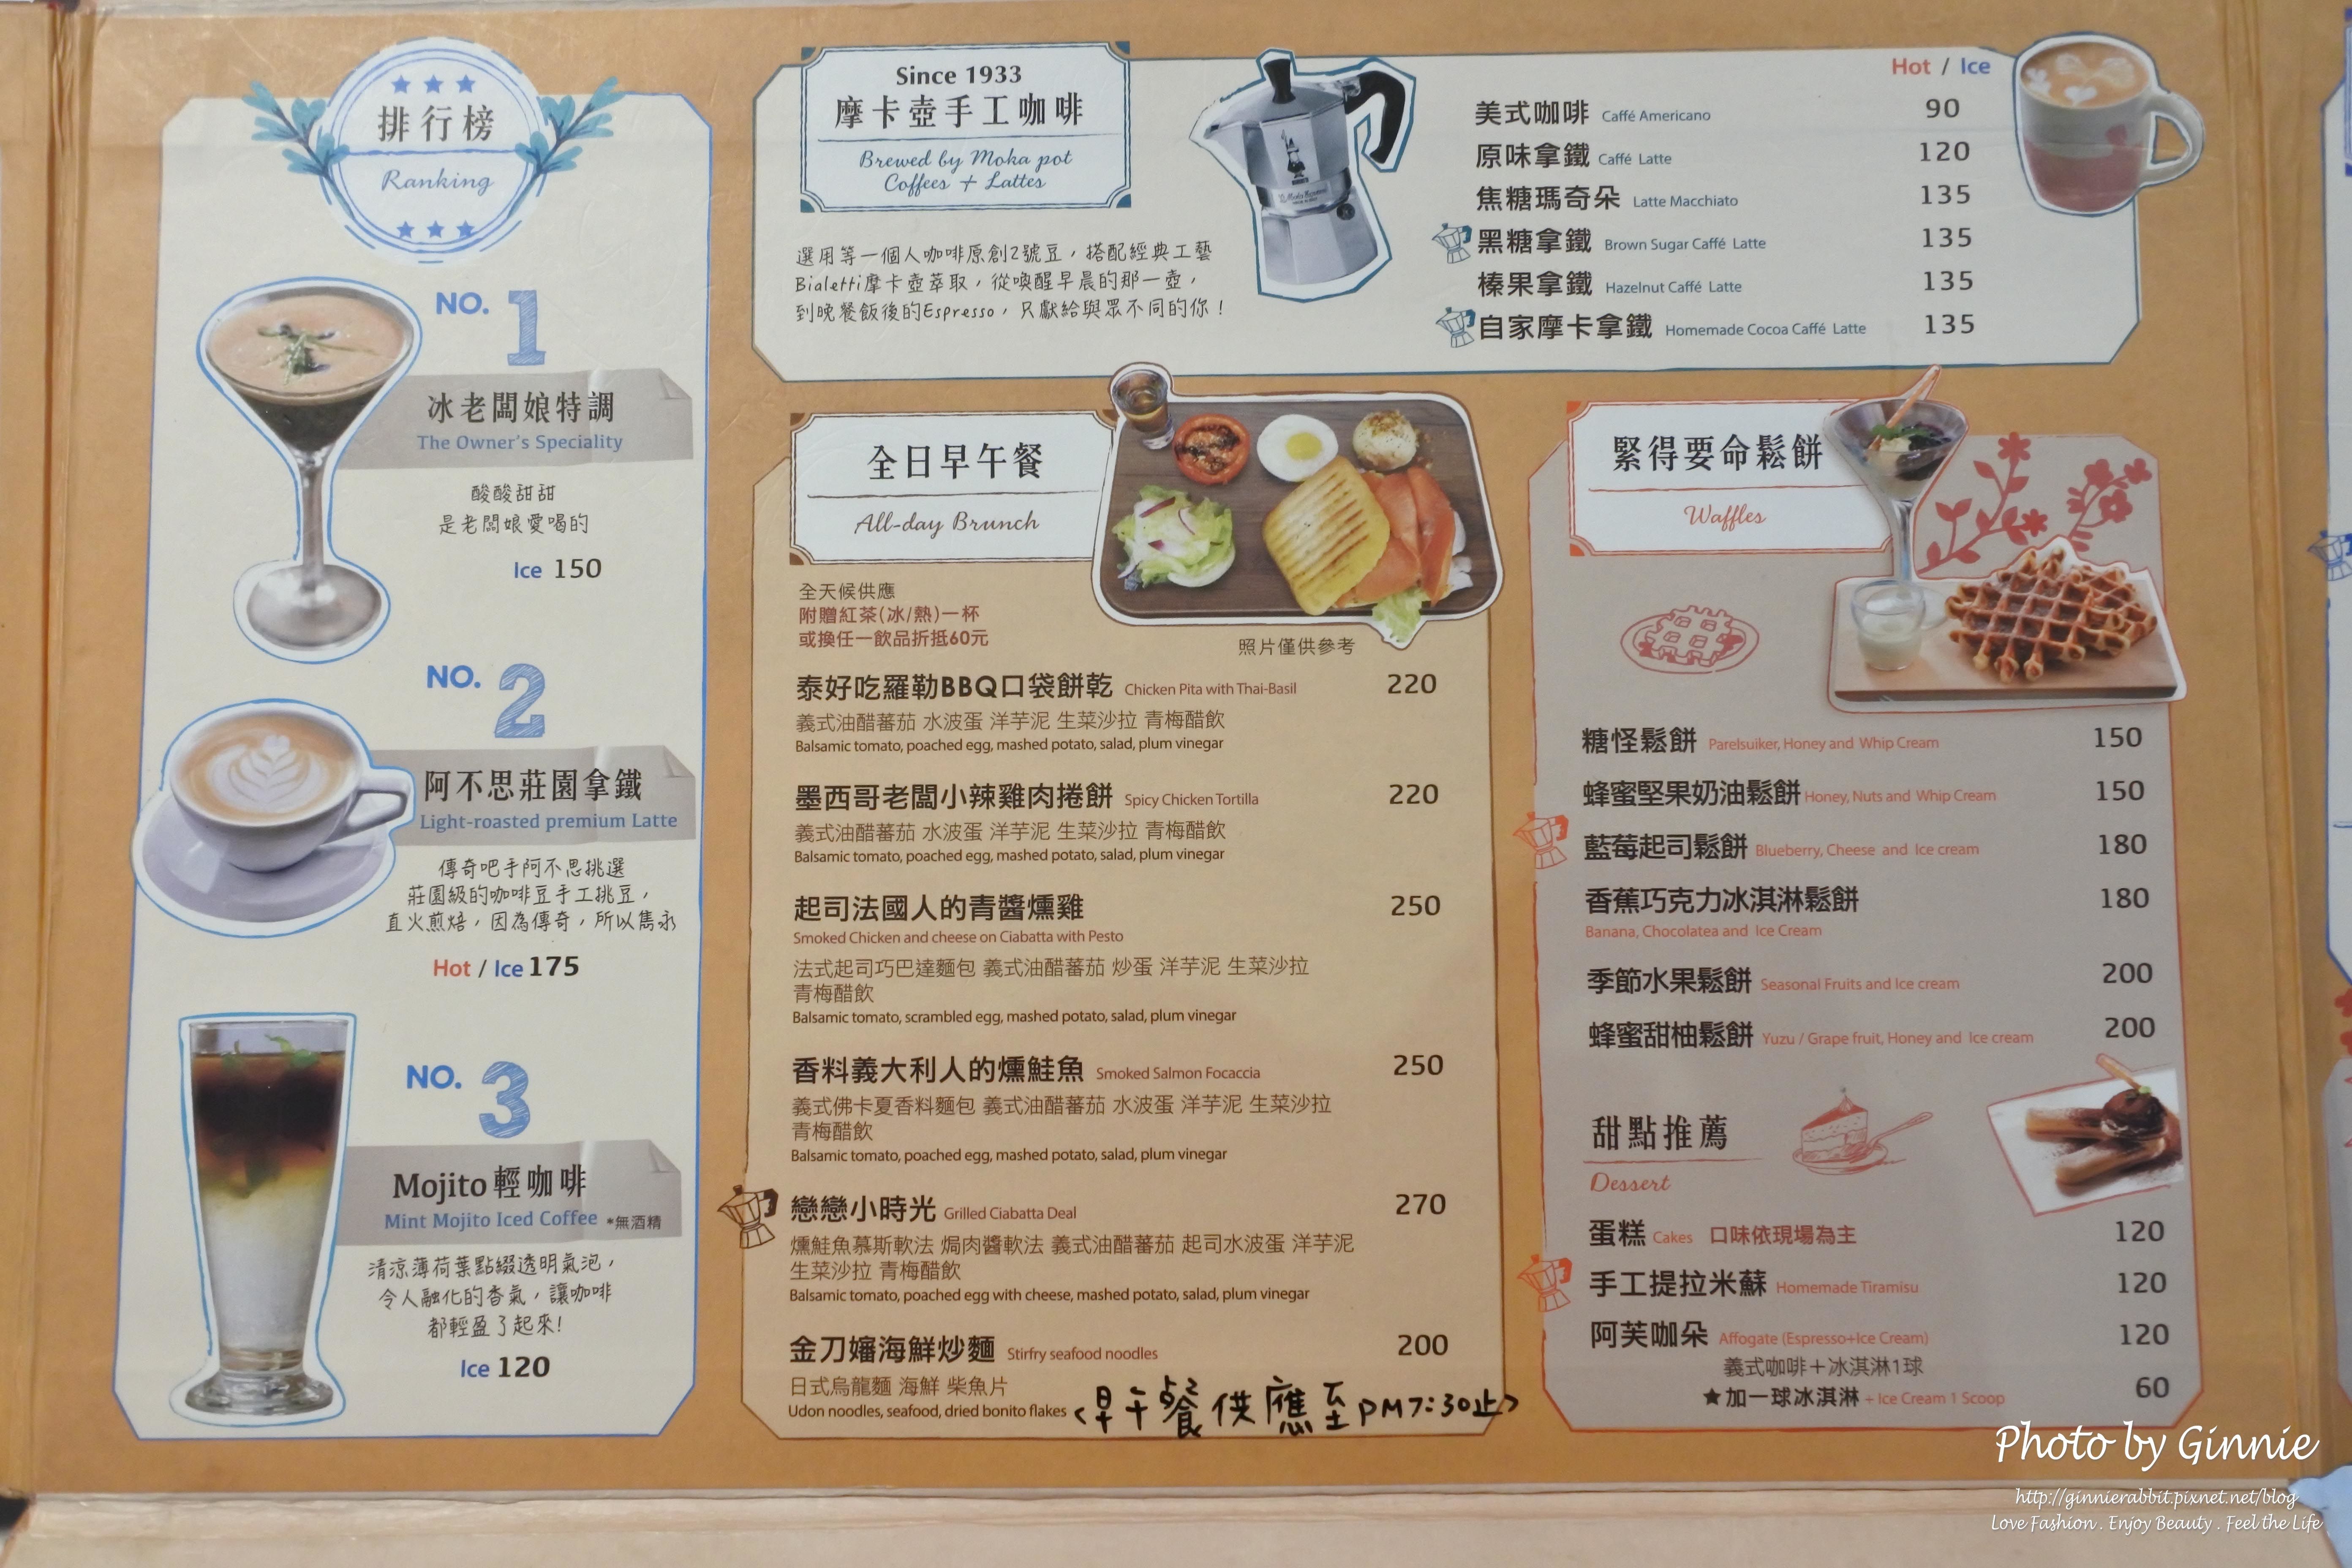 排行榜
Ranking
NO. 1
冰老闆娘特調
The Owner's Speciality
酸酸甜甜
是老闆娘愛喝的
Ice 150
NO. 2
阿不思莊園拿鐵
Light-roasted premium Latte
傳奇吧手阿不思挑選
莊園級的咖啡豆手工挑豆，
直火煎焙，因為傳奇，所以雋永
Hot / Ice 175
NO. 3
Mojito 輕咖啡
Mint Mojito Iced Coffee *無酒精
清涼薄荷葉點綴透明氣泡，
令人融化的香氣，讓咖啡
都輕盈了起來！
Ice 120
Since 1933
摩卡壺手工咖啡
Brewed by Moka pot
Coffees + Lattes
選用等一個人咖啡原創2號豆，搭配經典工藝
Bialetti摩卡壺萃取，從喚醒早晨的那一壺，
到晚餐飯後的Espresso，只獻給與眾不同的你！
Hot / Ice
美式咖啡 Caffé Americano 90
原味拿鐵 Caffé Latte 120
焦糖瑪奇朵 Latte Macchiato 135
黑糖拿鐵 Brown Sugar Caffé Latte 135
榛果拿鐵 Hazelnut Caffé Latte 135
自家摩卡拿鐵 Homemade Cocoa Caffé Latte 135
全日早午餐
All-day Brunch
全天候供應
附贈紅茶(冰/熱)一杯
或換任一飲品折抵60元
照片僅供參考
泰好吃羅勒BBQ口袋餅乾 Chicken Pita with Thai-Basil 220
義式油醋蕃茄 水波蛋 洋芋泥 生菜沙拉 青梅醋飲
Balsamic tomato, poached egg, mashed potato, salad, plum vinegar
墨西哥老闆小辣雞肉捲餅 Spicy Chicken Tortilla 220
義式油醋蕃茄 水波蛋 洋芋泥 生菜沙拉 青梅醋飲
Balsamic tomato, poached egg, mashed potato, salad, plum vinegar
起司法國人的青醬燻雞 250
Smoked Chicken and cheese on Ciabatta with Pesto
法式起司巧巴達麵包 義式油醋蕃茄 炒蛋 洋芋泥 生菜沙拉
青梅醋飲
Balsamic tomato, scrambled egg, mashed potato, salad, plum vinegar
香料義大利人的燻鮭魚 Smoked Salmon Focaccia 250
義式佛卡夏香料麵包 義式油醋蕃茄 水波蛋 洋芋泥 生菜沙拉
青梅醋飲
Balsamic tomato, poached egg, mashed potato, salad, plum vinegar
戀戀小時光 Grilled Ciabatta Deal 270
燻鮭魚慕斯軟法 焗肉醬軟法 義式油醋蕃茄 起司水波蛋 洋芋泥
生菜沙拉 青梅醋飲
Balsamic tomato, poached egg with cheese, mashed potato, salad, plum vinegar
金刀嬸海鮮炒麵 Stirfry seafood noodles 200
日式烏龍麵 海鮮 柴魚片
Udon noodles, seafood, dried bonito flakes
<早午餐供應至PM7:30止>
緊得要命鬆餅
Waffles
糖怪鬆餅 Parelsuiker, Honey and Whip Cream 150
蜂蜜堅果奶油鬆餅 Honey, Nuts and Whip Cream 150
藍莓起司鬆餅 Blueberry, Cheese and Ice cream 180
香蕉巧克力冰淇淋鬆餅 180
Banana, Chocolatea and Ice Cream
季節水果鬆餅 Seasonal Fruits and Ice cream 200
蜂蜜甜柚鬆餅 Yuzu / Grape fruit, Honey and Ice cream 200
甜點推薦
Dessert
蛋糕 Cakes 口味依現場為主 120
手工提拉米蘇 Homemade Tiramisu 120
阿芙咖朵 Affogate (Espresso+Ice Cream) 120
義式咖啡＋冰淇淋1球
★加一球冰淇淋 + Ice Cream 1 Scoop 60
Photo by Ginnie
http://ginnierabbit.pixnet.net/blog
Love Fashion . Enjoy Beauty . Feel the Life